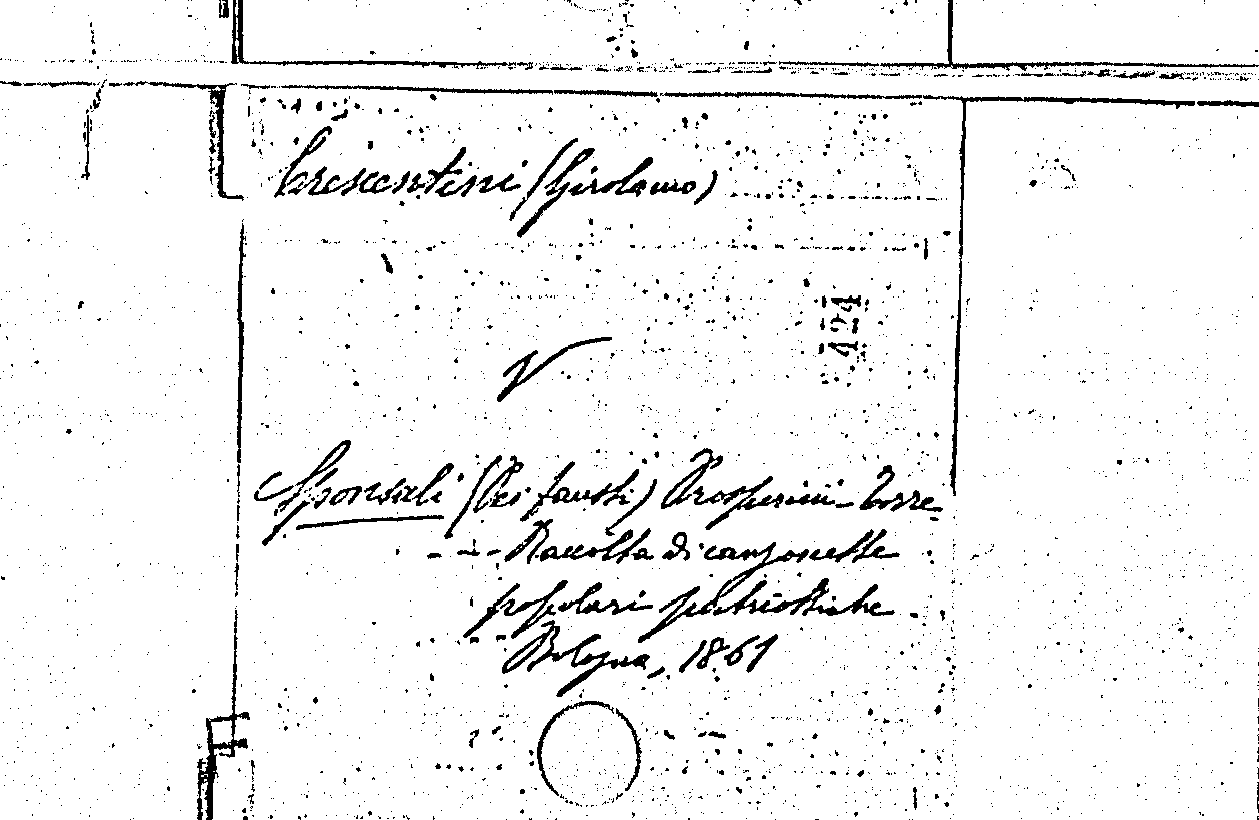 Crescentini (Girolamo)
424
V
Sponsali (Pei fausti) Prosperini-Torre-
--- Raccolta di canzonette
popolari patriottiche.
-- Bologna, 1861